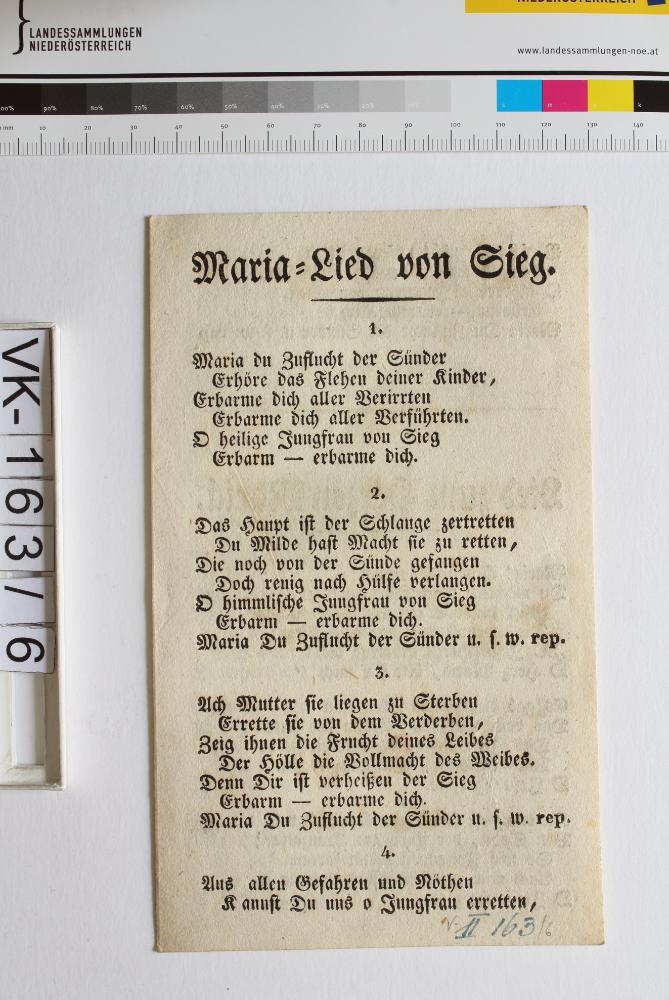 LANDESSAMMLUNGEN
NIEDERÖSTERREICH
NIEDERÖSTERREICH
www.landessammlungen-noe.at
90% 80% 70% 60% 50% 40% 30% 20% 10%
mm 10 20 30 40 50 60 70 80 90 100 110 120 130 140
VK-163/6
Maria-Lied von Sieg.
1.
Maria du Zuflucht der Sünder
Erhöre das Flehen deiner Kinder,
Erbarme dich aller Verirrten
Erbarme dich aller Verführten.
O heilige Jungfrau von Sieg
Erbarm — erbarme dich.
2.
Das Haupt ist der Schlange zertretten
Du Milde hast Macht sie zu retten,
Die noch von der Sünde gefangen
Doch reuig nach Hülfe verlangen.
O himmlische Jungfrau von Sieg
Erbarm — erbarme dich.
Maria Du Zuflucht der Sünder u. s. w. rep.
3.
Ach Mutter sie liegen zu Sterben
Errette sie von dem Verderben,
Zeig ihnen die Frucht deines Leibes
Der Hölle die Vollmacht des Weibes.
Denn Dir ist verheißen der Sieg
Erbarm — erbarme dich.
Maria Du Zuflucht der Sünder u. s. w. rep.
4.
Aus allen Gefahren und Nöthen
Kannst Du uns o Jungfrau erretten,
II 163/6